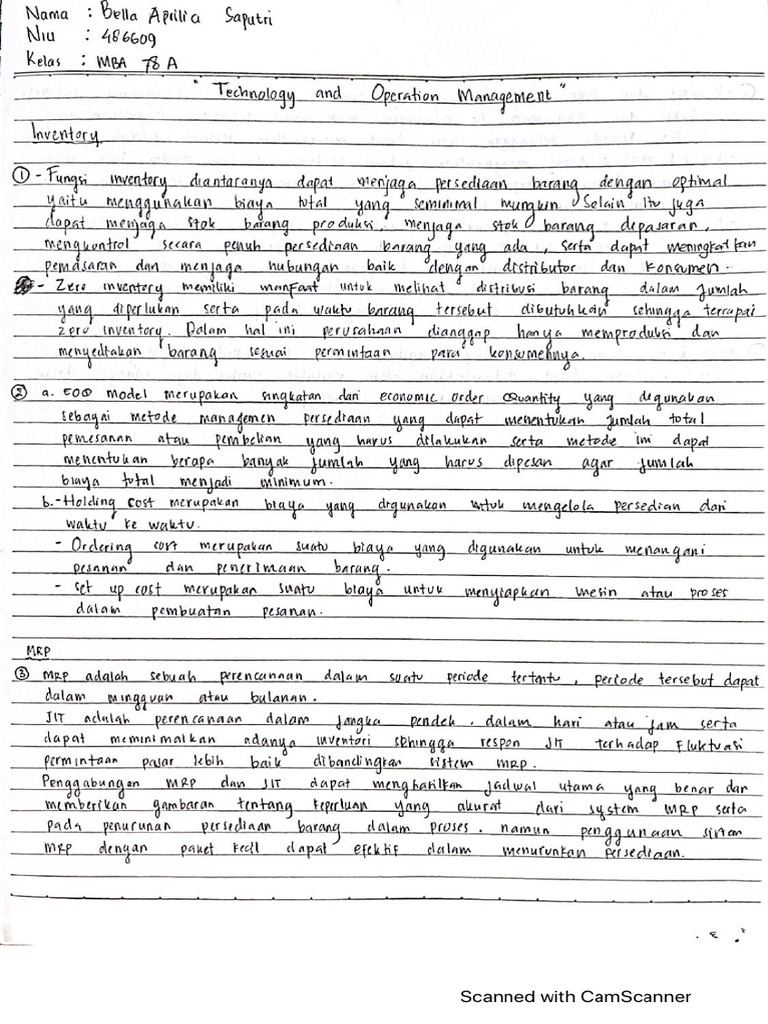 Nama : Bella Aprilia Saputri
Niu : 486609
Kelas : MBA 78 A
" Technology and Operation Management "
Inventory
① - Fungsi inventory diantaranya dapat menjaga persediaan barang dengan optimal
yaitu menggunakan biaya total yang seminimal mungkin. Selain itu juga
dapat menjaga stok barang produksi, menjaga stok barang depasaran,
mengkontrol secara penuh persediaan barang yang ada, serta dapat meningkatkan
pemasaran dan menjaga hubungan baik dengan distributor dan konsumen.
- Zero inventory memiliki manfaat untuk melihat distribusi barang dalam jumlah
yang diperlukan serta pada waktu barang tersebut dibutuhkan sehingga tercapai
zero inventory. Dalam hal ini perusahaan dianggap hanya memproduksi dan
menyediakan barang sesuai permintaan para konsumennya.
② a. EOQ model merupakan singkatan dari economic order Quantity yang digunakan
sebagai metode managemen persediaan yang dapat menentukan jumlah total
pemesanan atau pembelian yang harus dilakukan serta metode ini dapat
menentukan berapa banyak jumlah yang harus dipesan agar jumlah
biaya total menjadi minimum.
b. - Holding cost merupakan biaya yang digunakan untuk mengelola persedian dari
waktu ke waktu.
- Ordering cost merupakan suatu biaya yang digunakan untuk menangani
pesanan dan penerimaan barang.
- set up cost merupakan suatu biaya untuk menyiapkan mesin atau proses
dalam pembuatan pesanan.
MRP
③ MRP adalah sebuah perencanaan dalam suatu periode tertentu, periode tersebut dapat
dalam mingguan atau bulanan.
JIT adalah perencanaan dalam jangka pendek, dalam hari atau jam serta
dapat meminimalkan adanya inventori sehingga respon JIT terhadap fluktuasi
permintaan pasar lebih baik dibandingkan sistem MRP.
Penggabungan MRP dan JIT dapat menghasilkan jadwal utama yang benar dan
memberikan gambaran tentang keperluan yang akurat dari system MRP serta
pada penurunan persediaan barang dalam proses. namun penggunaan sistem
MRP dengan paket kecil dapat efektif dalam menurunkan persediaan.
Scanned with CamScanner